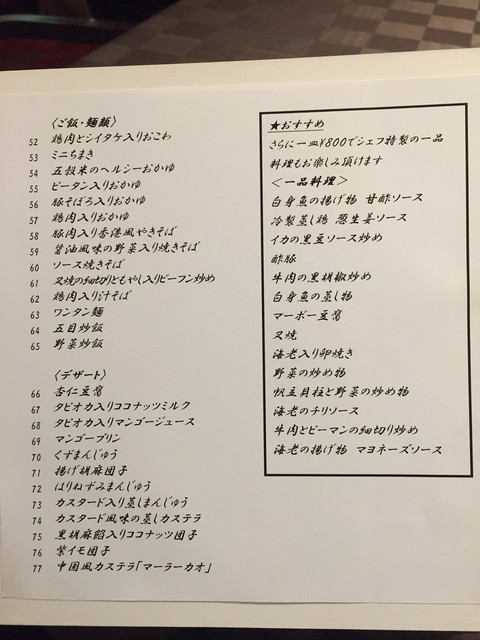 〈ご飯・麺類〉
52 鶏肉とシイタケ入りおこわ
53 ミニちまき
54 五穀米のヘルシーおかゆ
55 ピータン入りおかゆ
56 豚そぼろ入りおかゆ
57 鶏肉入りおかゆ
58 豚肉入り香港風やきそば
59 醤油風味の野菜入り焼きそば
60 ソース焼きそば
61 叉焼の細切りともやし入りビーフン炒め
62 鶏肉入り汁そば
63 ワンタン麺
64 五目炒飯
65 野菜炒飯
〈デザート〉
66 杏仁豆腐
67 タピオカ入りココナッツミルク
68 タピオカ入りマンゴージュース
69 マンゴープリン
70 くずまんじゅう
71 揚げ胡麻団子
72 はりねずみまんじゅう
73 カスタード入り蒸しまんじゅう
74 カスタード風味の蒸しカステラ
75 黒胡麻餡入りココナッツ団子
76 紫イモ団子
77 中国風カステラ「マーラーカオ」
★おすすめ
さらに一皿¥800でシェフ特製の一品
料理もお楽しみ頂けます
＜一品料理＞
白身魚の揚げ物 甘酢ソース
冷製蒸し鶏 葱生姜ソース
イカの黒豆ソース炒め
酢豚
牛肉の黒胡椒炒め
白身魚の蒸し物
マーボー豆腐
叉焼
海老入り卵焼き
野菜の炒め物
帆立貝柱と野菜の炒め物
海老のチリソース
牛肉とピーマンの細切り炒め
海老の揚げ物 マヨネーズソース